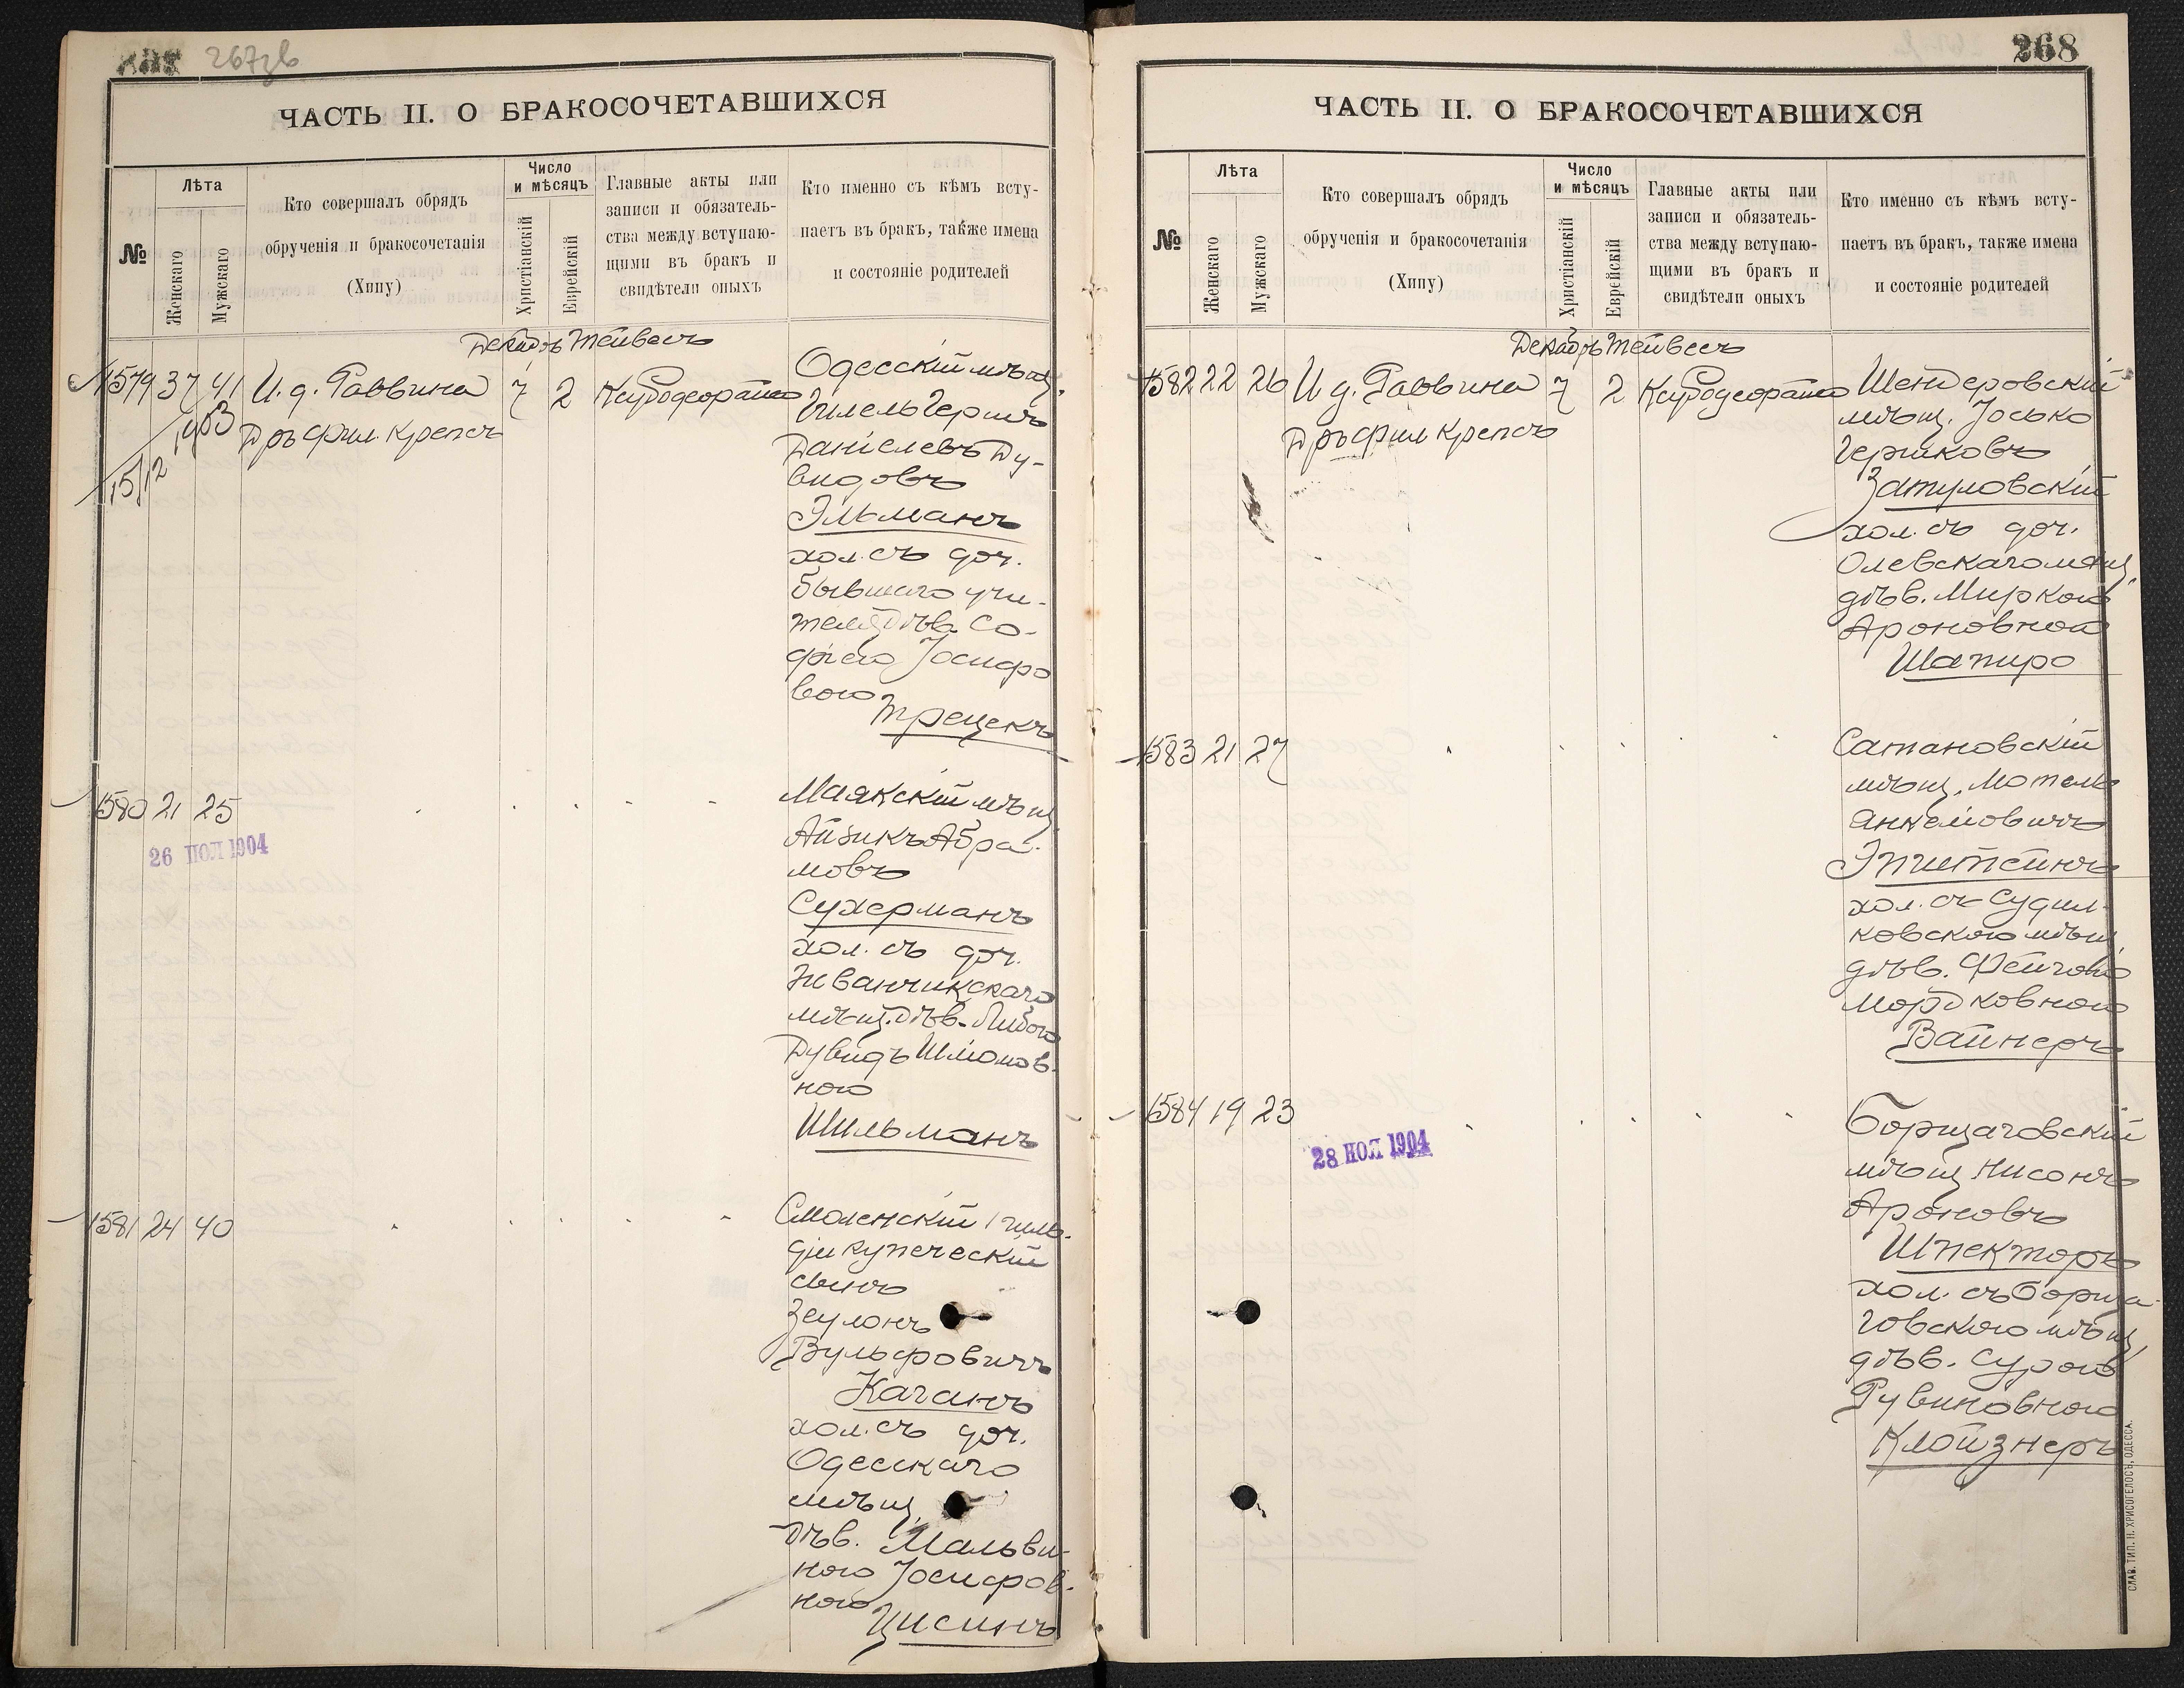 267
267зв
ЧАСТЬ II. О БРАКОСОЧЕТАВШИХСЯ
№
Лѣта
Женскаго
Мужскаго
Кто совершалъ обрядъ
обрученія и бракосочетанія
(Хипу)
Число
и мѣсяцъ
Христіанскій
Еврейскій
Главные акты или
записи и обязатель-
ства между вступаю-
щими въ бракъ и
свидѣтели оныхъ
Кто именно съ кѣмъ всту-
паетъ въ бракъ, также имена
и состояніе родителей
Декабрь Тейвесъ
1579 37 41 И. д. Раввина 7 2
Дръ Фил. Крепсъ
15/12 1903
Одесскій мѣщ.
Гилель Гершъ
Даніелевъ Ду-
видовъ
Эльманъ
хол. съ доч.
бывшаго учи-
теля дѣв. Со-
фіею Іосифо
вою
Трецекъ
1580 21 25
26 НОЯ 1904
Маякскій мѣщ.
Айзикъ Абра-
мовъ
Сухерманъ
хол. съ доч.
Жванчикскаго
мѣщ. дѣв. Либою
Дувидъ Шліомов-
ною
Шильманъ
1581 24 40
Смоленскій 1 гиль-
діи купеческій
сынъ
Зеулонъ
Вульфовичъ
Каганъ
хол. съ доч.
Одесскаго
мѣщ.
дѣв. Мальви-
ною Іосифов-
ною
Цисинъ
268
ЧАСТЬ II. О БРАКОСОЧЕТАВШИХСЯ
№
Лѣта
Женскаго
Мужскаго
Кто совершалъ обрядъ
обрученія и бракосочетанія
(Хипу)
Число
и мѣсяцъ
Христіанскій
Еврейскій
Главные акты или
записи и обязатель-
ства между вступаю-
щими въ бракъ и
свидѣтели оныхъ
Кто именно съ кѣмъ всту-
паетъ въ бракъ, также имена
и состояніе родителей
Декабрь Тейвесъ
1582 22 26 И д. Раввина 7 2
Дръ Фил Крепсъ
Шендеровскій
мѣщ. Іосько
Гершковъ
Затуловскій
хол. съ доч.
Олевскаго мѣщ.
дѣв. Миркою
Ароновной
Шапиро
1583 21 27
Сатановскій
мѣщ. Мотель
Анкеліовичъ
Эпштейнъ
хол. съ Судил-
ковскою мѣщ.
дѣв. Фейгою
Мордковною
Вайнеръ
1584 19 23
28 НОЯ 1904
Борщаговскій
мѣщ Нисонъ
Ароновъ
Шпекторъ
хол. съ Борща-
говскою мѣщ.
дѣв. Сурою
Рувиновною
Клойзнеръ
СЛАВ. ТИП. Н. ХРИСОГЕЛОСЪ, ОДЕССА.